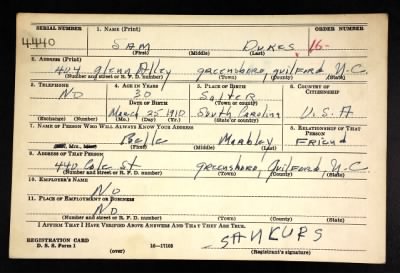 SERIAL NUMBER 1. NAME (Print) ORDER NUMBER
4440 SAM DUKES 16-
(First) (Middle) (Last)
2. ADDRESS (Print)
404 Glenn Alley GREENSBORO, GUILFORD N-C.
(Number and street or R. F. D. number) (Town) (County) (State)
3. TELEPHONE 4. AGE IN YEARS 5. PLACE OF BIRTH 6. COUNTRY OF CITIZENSHIP
NO 30 Salter
DATE OF BIRTH (Town or county)
March 25 1910 South Carolina U.S.A
(Exchange) (Number) (Mo.) (Day) (Yr.) (State or country)
7. NAME OF PERSON WHO WILL ALWAYS KNOW YOUR ADDRESS 8. RELATIONSHIP OF THAT PERSON
Belle Friend
(First) (Middle) (Last)
9. ADDRESS OF THAT PERSON
440 Cole St GREENSBORO, Guilford N-C.
(Number and street or R. F. D. number) (Town) (County) (State)
10. EMPLOYER'S NAME
NO
11. PLACE OF EMPLOYMENT OR BUSINESS
NO
(Number and street or R. F. D. number) (Town) (County) (State)
I AFFIRM THAT I HAVE VERIFIED ABOVE ANSWERS AND THAT THEY ARE TRUE.
REGISTRATION CARD
D. S. S. Form 1 (over) 16-17105 (Registrant's signature)